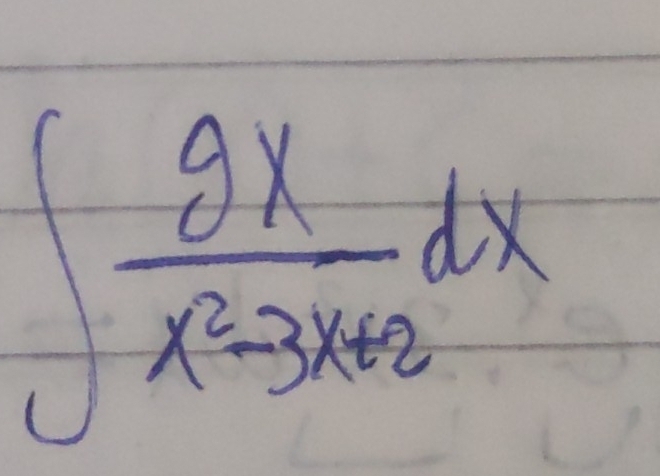 ∫ 9x / (x² - 3x + 2) dx